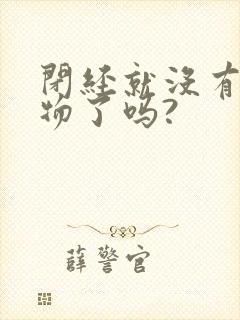 閉经就没有
物了吗?
薛警官